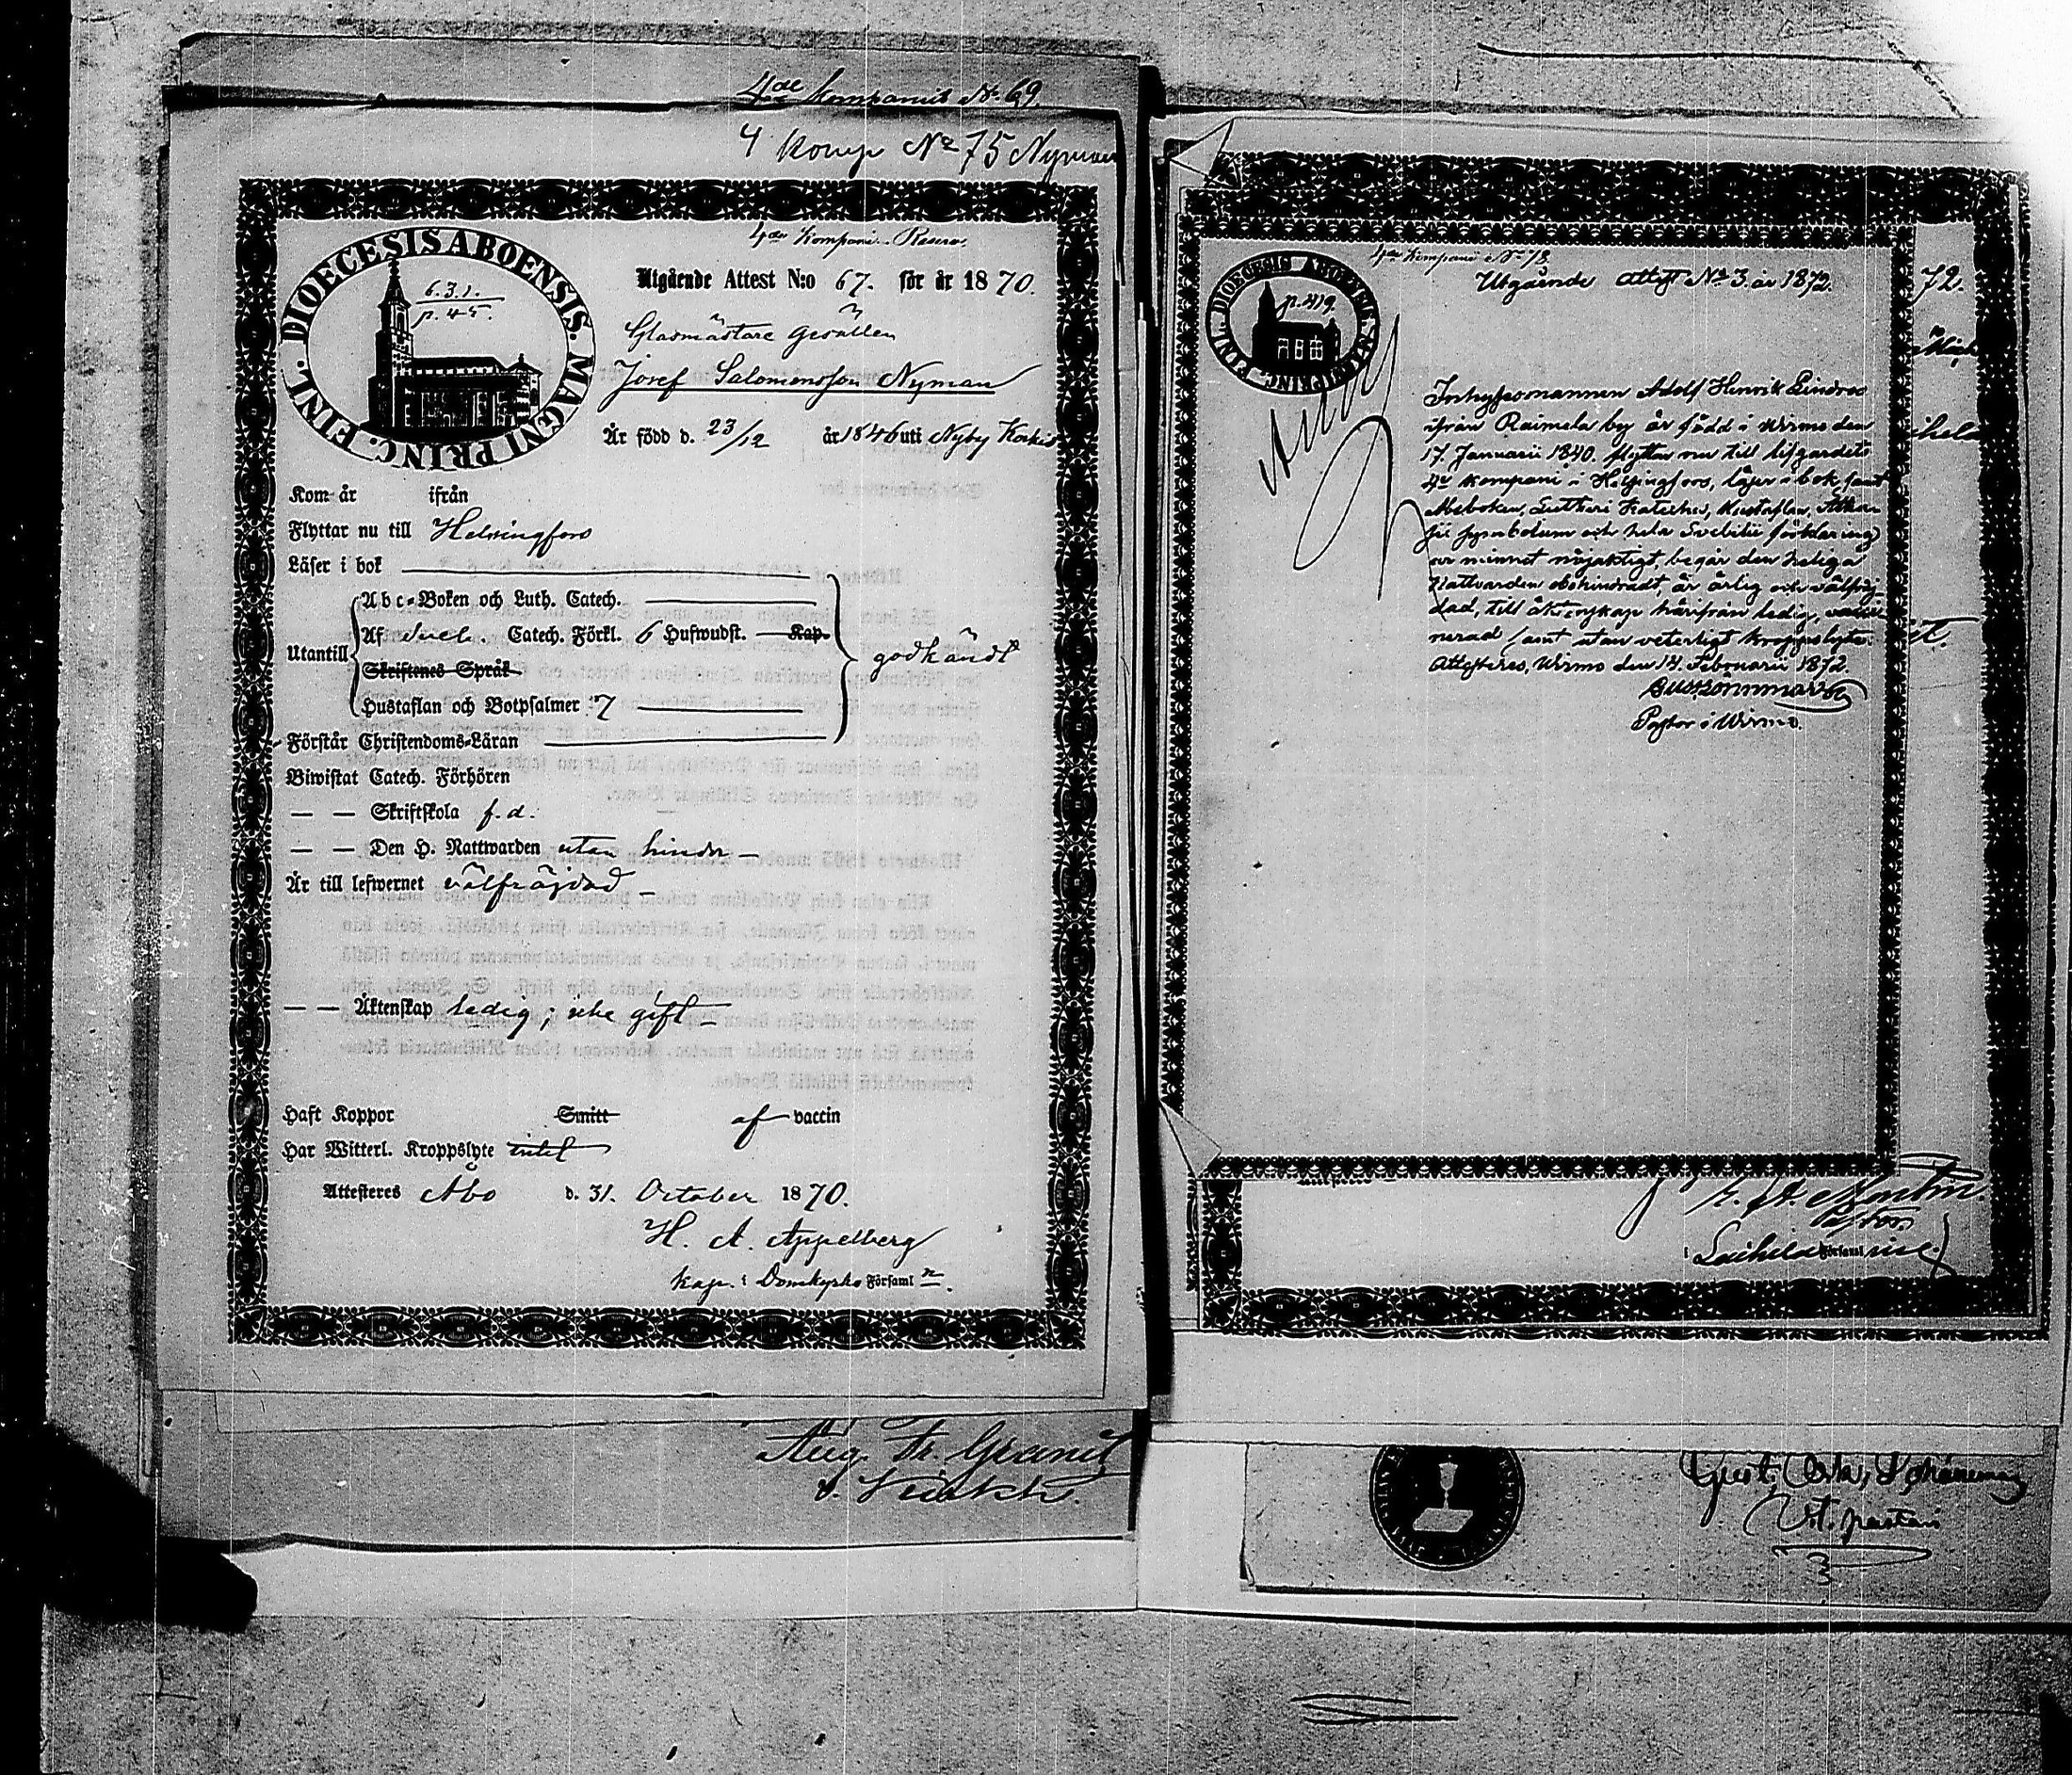 4de Kompanie No 69.
4 Komp No 75 Nyman
4de Kompani. Reserv.
DIOECESIS ABOENSIS. MAGNI PRINC. FINL.
6.3.1.
p. 45.
Utgående Attest N:o 67. för år 1870.
Glasmästare Gesällen
Josef Salomonsson Nyman
Är född d. 23/12 år 1846 uti Nyby Kakis
Kom år ifrån
Flyttar nu till Helsingfors
Läser i bok
Abc-Boken och Luth. Catech.
Af Sveb. Catech. Förkl. 6 Hufwudst. Kap.
Utantill
godkändt
Skriftenes Språk
Hustaflan och Botpsalmer 7
Förstår Christendoms-Läran
Biwistat Catech. Förhören
— — Skriftskola f. d.
— — Den H. Nattwarden utan hinder —
Är till lefwernet välfräjdad —
— — Äktenskap ledig; icke gift —
Haft Koppor Smitt af vaccin
Har Witterl. Kroppslyte intet
Attesteres Åbo d. 31. October 1870.
H. A. Appelberg
Kap. i Domkyrko Församl n.
Aug. Fr. Granit
4de Kompani No 78.
DIOECESIS ABOENSIS MAGNI PRINC. FINL.
p. 419.
Utgående attest No 3. år 1872.
Inhysesmannen Adolf Henrik Lindroos
ifrån Raimela by är född i Wirmo den
17. Januarii 1840. flyttar nu till lifgardets
4de Kompani i Helsingfors, läser i bok, samt
Abeboken, Lutheri Kateches, Hustaflan, Athana
sii symbolum och hela Svebilii förklaring
ur minnet nöjaktigt, begår den heliga
Nattvarden obehindradt, är ärlig och välfräj-
dad, till äktenskap härifrån ledig, vacci
nerad samt utan veterligt kroppslyte.
Attesteres, Wirmo den 14. Februarii 1872.
Pastor i Wirmo.
72.
Pastor
i Laihela Församl
Gust. Johansson